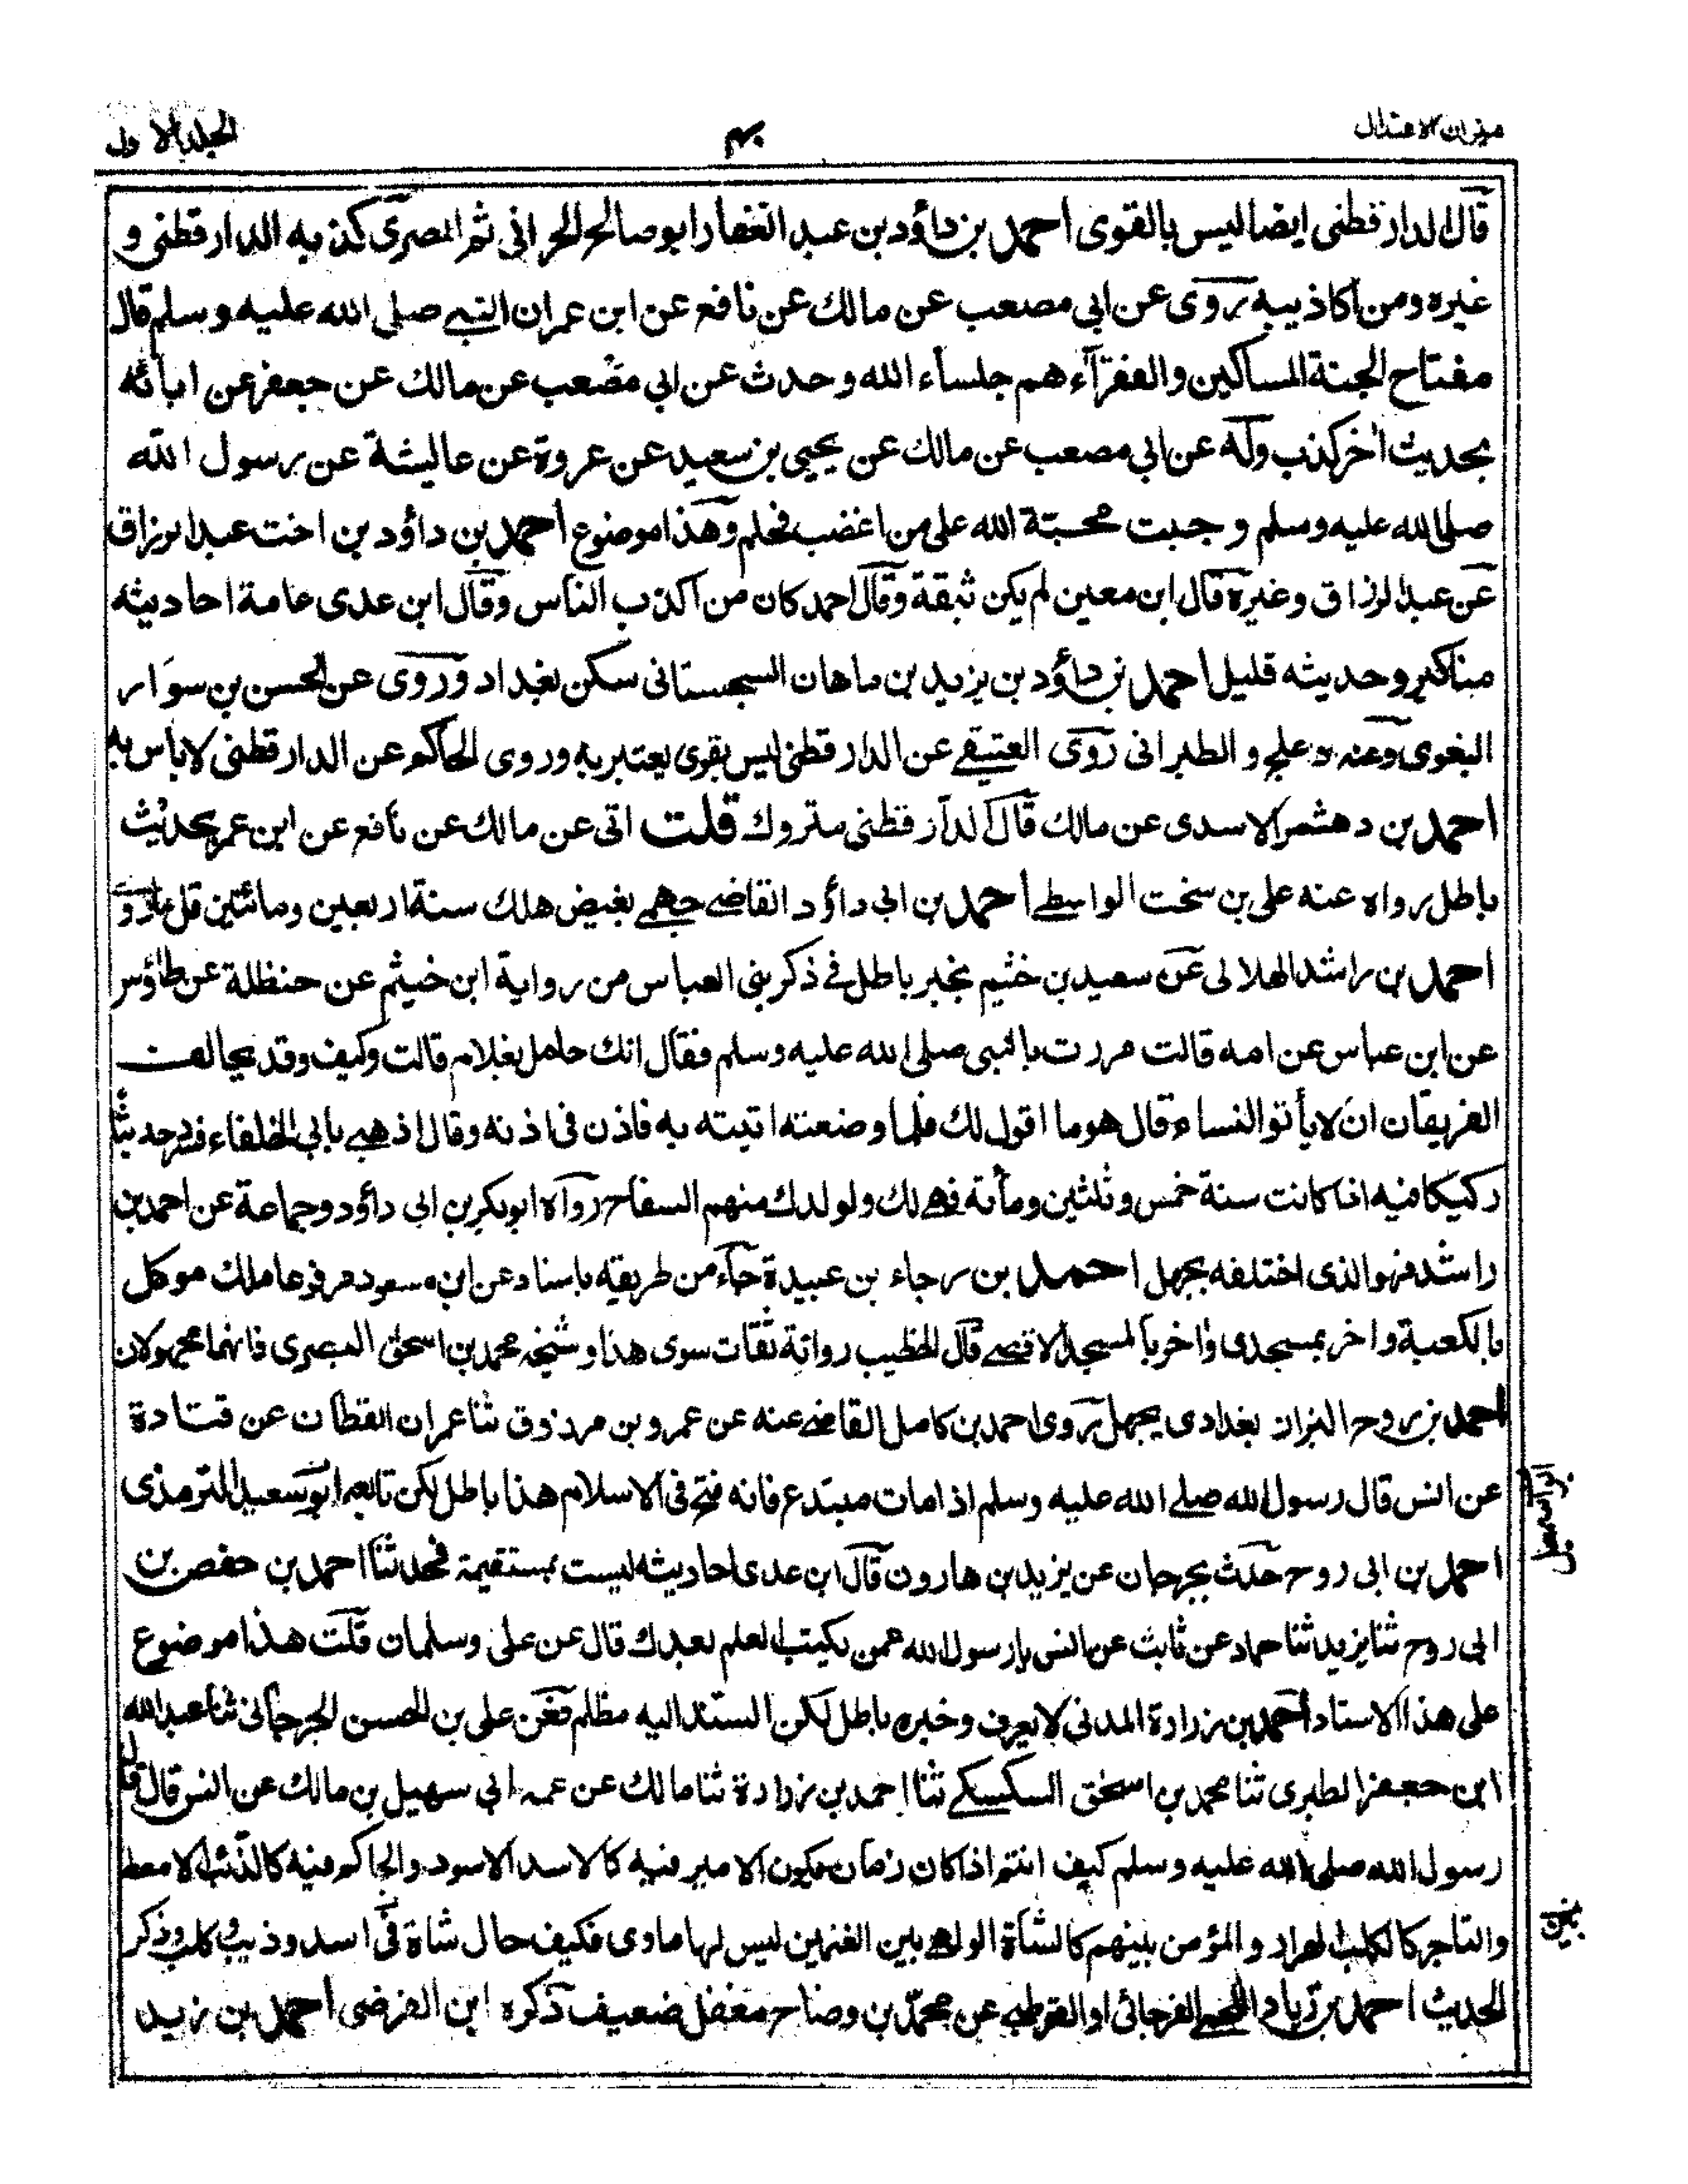 ميزان الاعتدال
٤٠
الجلد الاول
قال الدارقطنى ايضا ليس بالقوى احمد بن داؤد بن عبد الغفار ابو صالح الحرانى ثم المصرى كذبه الدارقطنى و
غيره ومن اكاذيبه روى عن ابى مصعب عن مالك عن نافع عن ابن عمر ان النبى صلى الله عليه وسلم قال
مفتاح الجنة المساكين والفقرآء هم جلسآء الله وحدث عن ابى مصعب عن مالك عن جعفر عن ابائه
بحديث اخر كذب وله عن ابى مصعب عن مالك عن يحيى بن سعيد عن عروة عن عاليشة عن رسول الله
صلى الله عليه وسلم وجبت محبة الله على من اغضب فحلم وهذا موضوع احمد بن داؤد بن اخت عبد الرزاق
عن عبد الرزاق وغيره قال ابن معين لم يكن ثبقة وقال احمد كان من اكذب الناس وقال ابن عدى عامة احاديثه
مناكير وحديثه قليل احمد بن داؤد بن يزيد بن ماهان السجستانى سكن بغداد وروى عن الحسن بن سوار
البغوى وعنه دعلج و الطبرانى روى العتيقے عن الدارقطنى ليس بقوى يعتبر به وروى الحاكم عن الدارقطنى لا باس به
احمد بن دهشم الاسدى عن مالك قال الدارقطنى متروك قلت اتى عن مالك عن نافع عن ابن عمر بحديث
باطل رواه عنه على بن سخت الواسطے احمد بن ابى داؤد القاضے جهمے بغيض هلك سنة اربعين ومائتين قل ما روى
احمد بن راشد الهلالى عن سعيد بن خثيم بخبر باطل فے ذكر بنى العباس من رواية ابن خيثم عن حنظلة عن طاؤس
عن ابن عباس عن امه قالت مررت بالنبى صلى الله عليه وسلم فقال انك حامل بغلام قالت وكيف وقد تحالفت
الفريقان ان لا يأتوا النساء قال هو ما اقول لك فلما وضعته اتيته به فاذن فى اذنه وقال اذهبے بابى الخلفاء فذكر حديثا
ركيكا فيه اذا كانت سنة خمس و ثلثين ومأئة فهے لك ولولدك منهم السفاح رواه ابو بكر بن ابى داؤد وجماعة عن احمد بن
راشد فهو الذى اختلقه بجهل احمد بن رجاء بن عبيدة جآء من طريقه باسناد عن ابن مسعود مرفوعا ملك موكل
بالكعبة واخر بمسجدى واخر بالمسجد الاقصے قال الخطيب رواتة ثقات سوى هذا وشيخه محمد بن اسحق البصرى فانهما مجهولان
احمد بن روح البزاز بغدادى يجهل روى احمد بن كامل القاضے عنه عن عمرو بن مرزوق ثنا عمران القطان عن قتادة
عن انس قال رسول الله صلے الله عليه وسلم اذا مات مبتدع فانه فتح فى الاسلام هذا باطل لكن تابعه ابو سعيد الترمذى
احمد بن ابى روح حدث بجرجان عن يزيد بن هارون قال ابن عدى احاديثه ليست بمستقيمة فحدثنا احمد بن حفص بن
ابى روح ثنا يزيد ثنا حماد عن ثابت عن انس يا رسول الله عمن يكتب العلم بعدك قال عن على وسلمان قلت هذا موضوع
على هذا الاسناد احمد بن زرارة المدنى لا يعرف وخبره باطل لكن السند اليه مظلم فعن على بن الحسن الجرجانى ثنا عبد الله
ابن جعفر الطبرى ثنا محمد بن اسحق السكسكے ثنا احمد بن زرارة ثنا مالك عن عمه ابى سهيل بن مالك عن انس قال قال
رسول الله صلى الله عليه وسلم كيف انتم اذا كان زمان يكون الامير فيه كالاسد الاسود والحاكم فيه كالذئب الامعط
والتاجر كالكلب الهرار والمؤمن بينهم كالشاة الولهے بين الغنمين ليس لها ماوى فكيف حال شاة بين اسد وذيب وكلب وذكر
الحديث احمد بن زياد اللخمے الفرجانى او القرطبے عن محمد بن وضاح مغفل ضعيف ذكره ابن الفرضى احمد بن زيد
بين